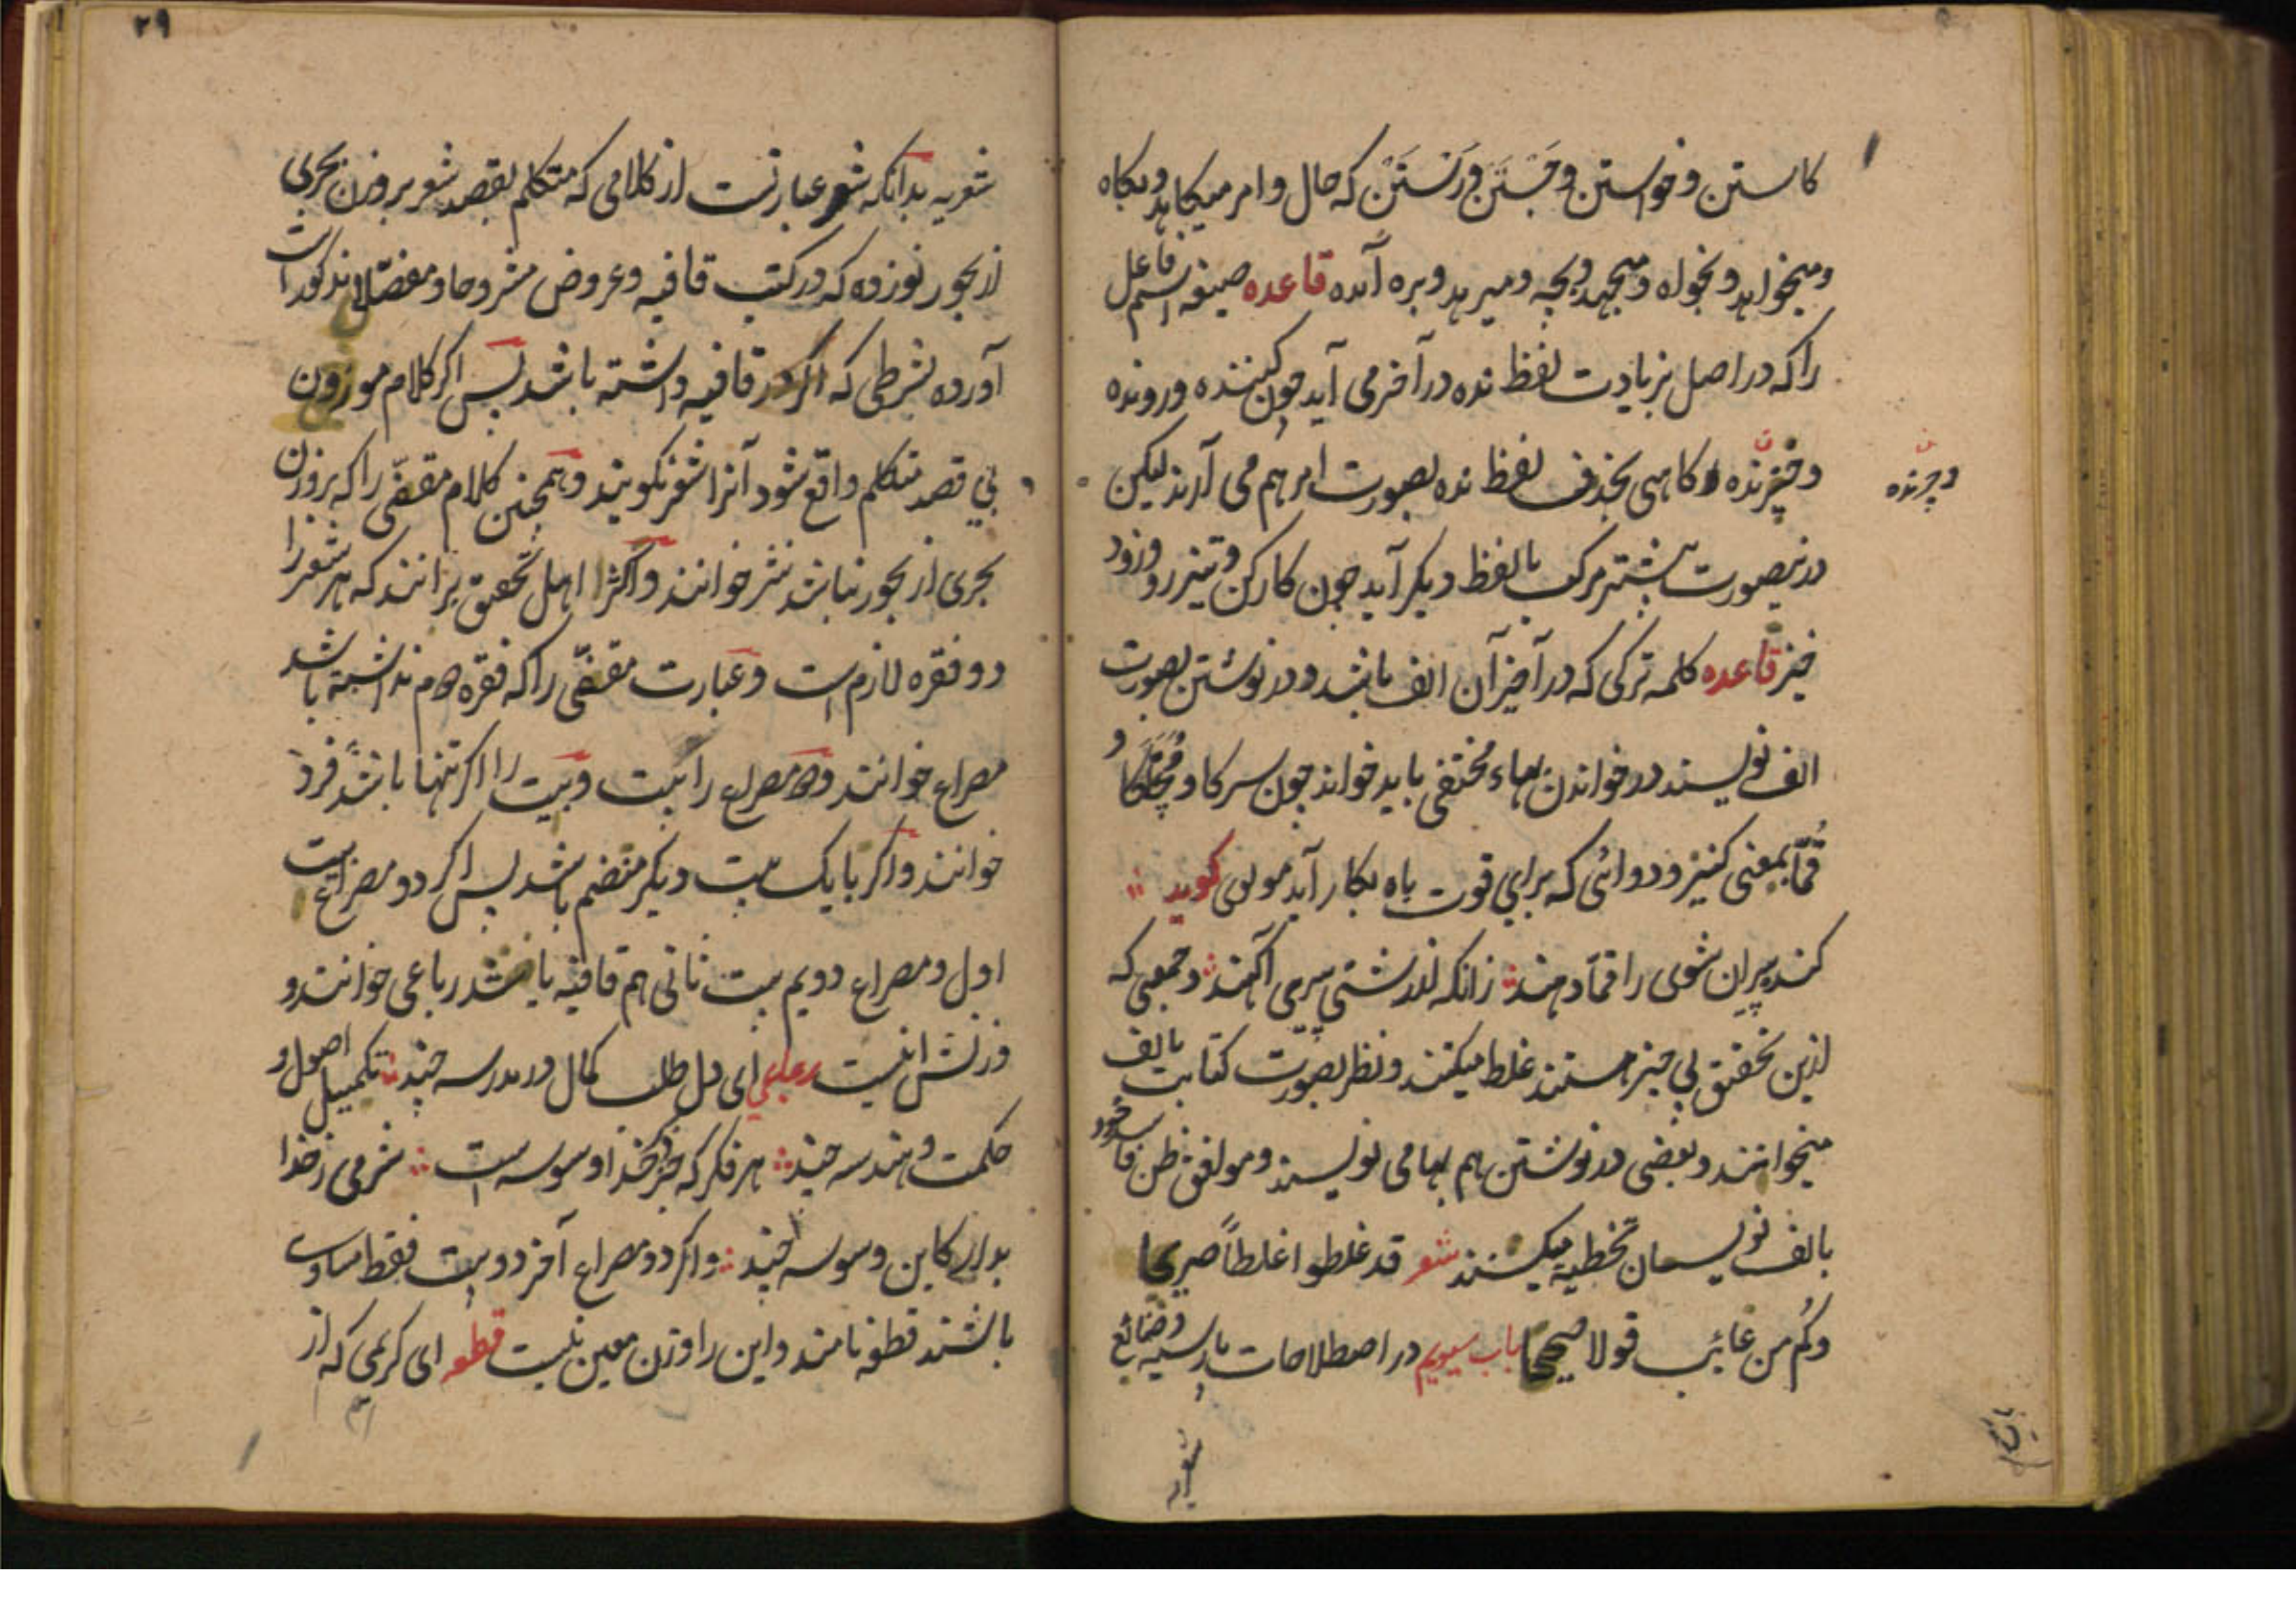 کاستن و خواستن و جَستَن و رَستَن که حال و امر میکاهد و بکاه
و میخواهد و بخواه و میجهد و بجه و میرهد و بره آمده قاعده صیغه اسم فاعل
را که در اصل بزیادت لفظ نده در آخر می آید چون کننده و رونده
و چرنده
و خیزنده و کاهی بحذف لفظ نده بصورت امر هم می آرند لیکن
درینصورت بیشتر مرکب با لفظ دیکر آید چون کارکن و تیزرو و زود
خیز قاعده کلمه ترکی که در آخر آن الف باشد و در نوشتن بصورت
الف نویسند در خواندن بهاء مختفی باید خواند چون سرکا و و
قُمّا بمعنی کنیز و دوائی که برای قوت باه بکار آید مولوی کوید
کنده پیران شوی را قما دهند زانکه از زشتی پیری آکهند و جمعی که
ازین تحقیق بی خبر هستند غلط میکنند و نظر بصورت کتابت بالف
میخوانند و بعضی در نوشتن هم بها می نویسند و موافق ظن فاسد خود
بالف نویسان تخطیه میکنند شعر قد غلطوا غلطاً صریحا
وکم من عائب قولا صحیحا باب سیویم در اصطلاحات پارسیه و ضائع
شعریه
۲۹
شعریه بدانکه شعر عبارتست از کلامی که متکلم بقصد شعر بر وزن بحری
از بحور نوزده که در کتب قافیه و عروض مشروحا و مفصّلا مذکور است
آورده بشرطی که اکر در قافیه داشته باشد پس اکر کلام موزون
بی قصد متکلم واقع شود آنرا شعر نکویند و همچنین کلام مقفّی را که بر وزن
بحری از بحور نباشد نثر خوانند و اکثر اهل تحقیق برانند که هر شعر را
دو فقره لازم است و عبارت مقفّی را که فقره دوم نداشته باشد
مصراع خوانند و دو مصراع را بیت و بیت را اکر تنها باشد فرد
خوانند و اکر با یک بیت دیکر منضم باشد پس اکر دو مصراع بیت
اول و مصراع دویم بیت ثانی هم قافیه باشد رباعی خوانند و
وزنش اینست رباعی ای دل طلب کمال در مدرسه چند تکمیل اصول و
حکمت و هندسه چند هر فکر که جز ذکر خدا وسوسه است شرمی ز خدا
بدار کاین وسوسه چند و اکر دو مصراع آخر دو بیت فقط مساوی
باشند قطعه نامند و این را وزن معین نیست قطعه ای کریمی که از